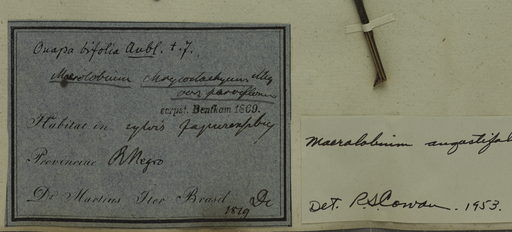 Ouapa bifolia Aubl. t. 7.
Macrolobium chrysostachyum Miq
var. parviflorum
script. Bentham 1869.
Habitat in sylvis Japurensibus
Provinciae R Negro
Dr Martius Iter Brasil
1819
Macrolobium angustifol
Det. R.S. Cowan. 1953.